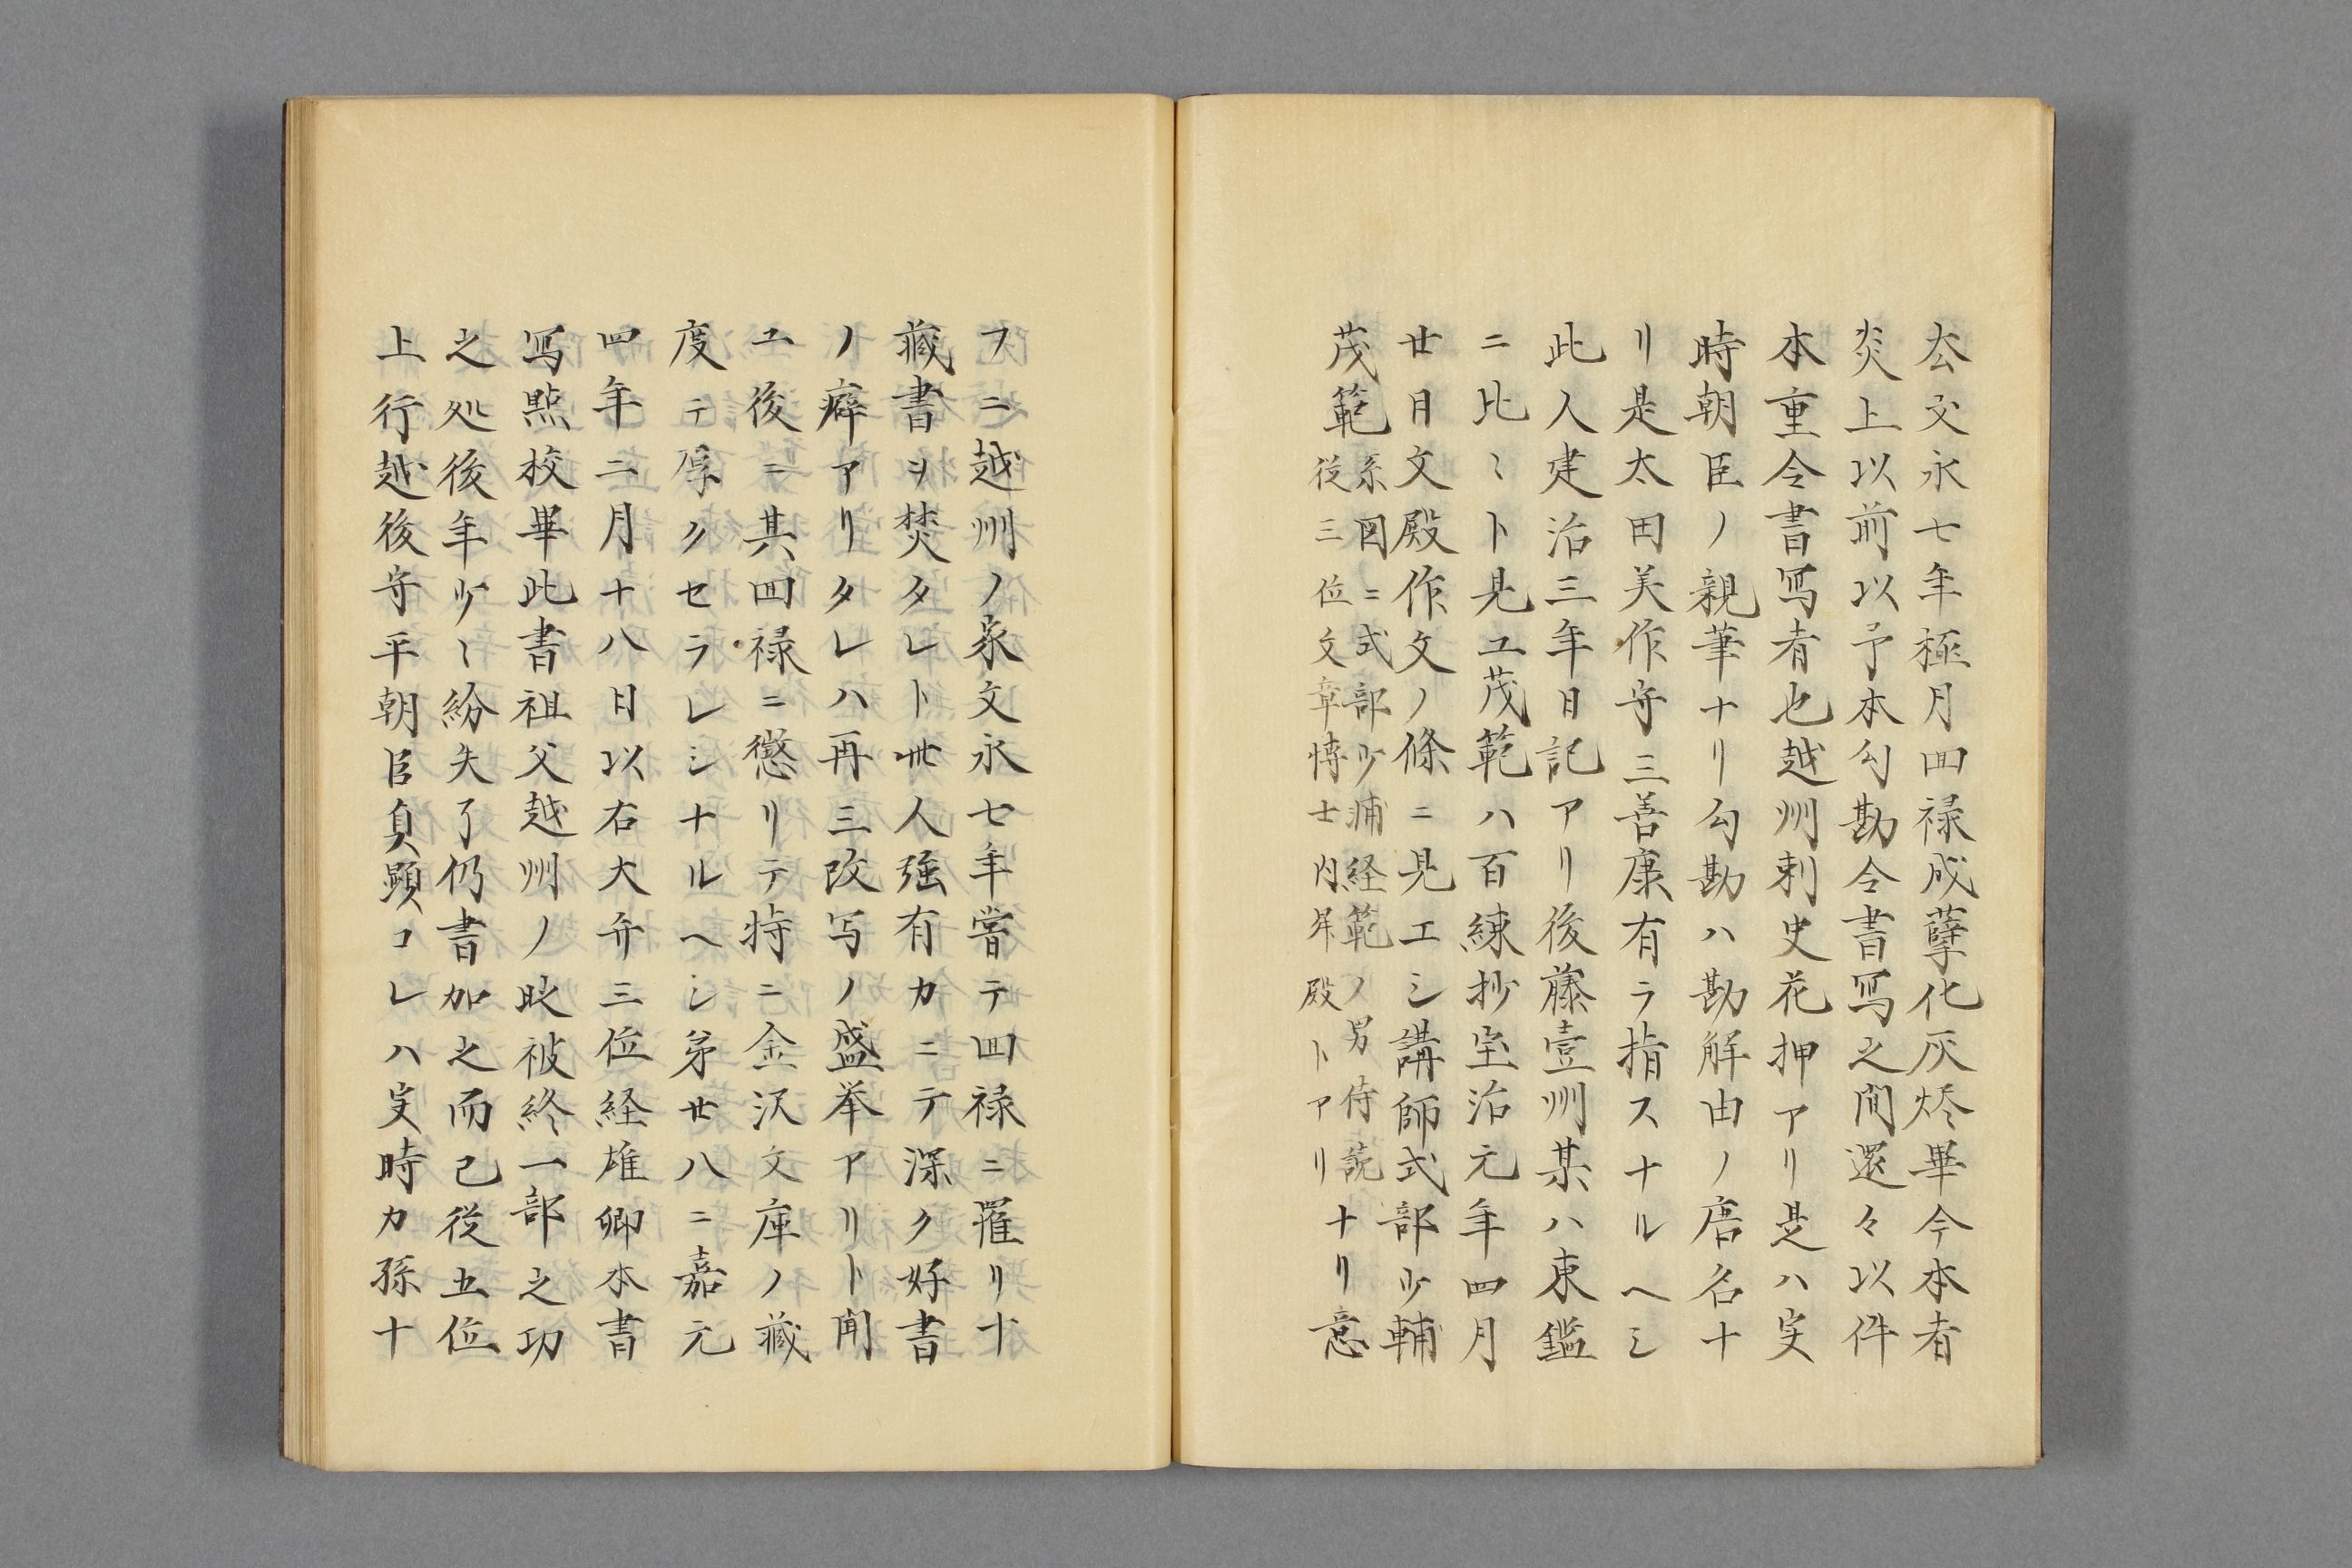 太公文永七年極月回禄成孽化灰燼畢今本者
炎上以前以予本勾勘令書写之間還々以件
本重令書写者也越州刺史花押アリ是ハ实
時朝臣ノ親筆ナリ勾勘ハ勘解由ノ唐名ナ
リ是太田美作守三善康有ヲ指スナルヘシ
此人建治三年日記アリ後藤壹州某ハ東鑑
ニ比〻ト見ユ茂範ハ百練抄宝治元年四月
廿日文殿作文ノ條ニ見エシ講師式部少輔
茂範
系図ニ式部少輔経範ノ男侍読
従三位文章博士内昇殿トアリ
ナリ意
フニ越州ノ家文永七年嘗テ回禄ニ罹リ十
蔵書ヲ焚タレト卋人強有力ニテ深ク好書
ノ癖アリタレハ再三改写ノ盛挙アリト聞
ユ後ニ其回禄ニ懲リテ特ニ金沢文庫ノ蔵
度テ厚クセラレシナルヘシ弟廿八ニ嘉元
四年二月十八日以右大弁三位経雄卿本書
写點校畢此書祖父越州ノ時被終一部之功
之処後年少〻紛失了仍書加之而已従五位
上行越後守平朝臣貞顕コレハ实時カ孫十